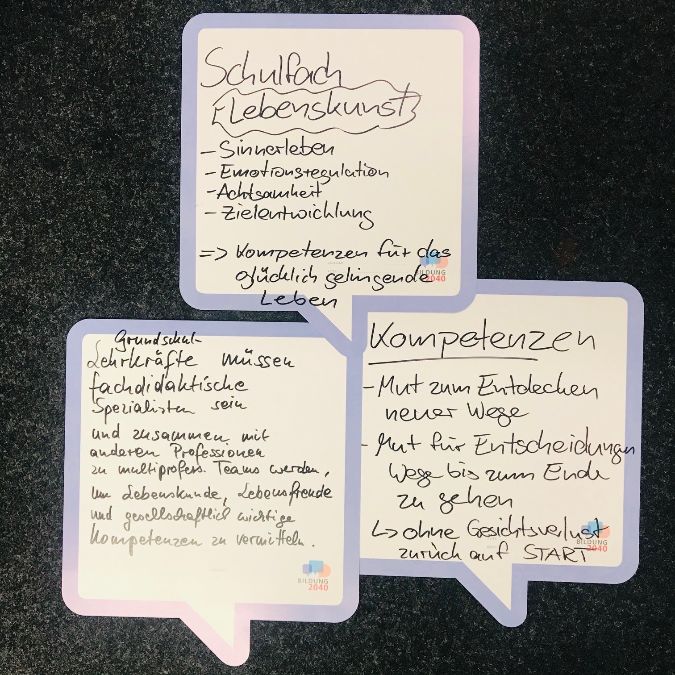 Schulfach
Lebenskunst
- Sinnerleben
- Emotionsregulation
- Achtsamkeit
- Zielentwicklung
=> Kompetenzen für das
glücklich gelingende
Leben
BILDUNG
2040
Grundschul-
Lehrkräfte müssen
fachdidaktische
Spezialisten sein
und zusammen mit
anderen Professionen
zu multiprofess. Teams werden,
um Lebenskunde, Lebensfreude
und gesellschaftlich wichtige
Kompetenzen zu vermitteln.
BILDUNG
2040
Kompetenzen
- Mut zum Entdecken
neuer Wege
- Mut für Entscheidungen
Wege bis zum Ende
zu gehen
↳ ohne Gesichtsverlust
zurück auf START
BILDUNG
2040